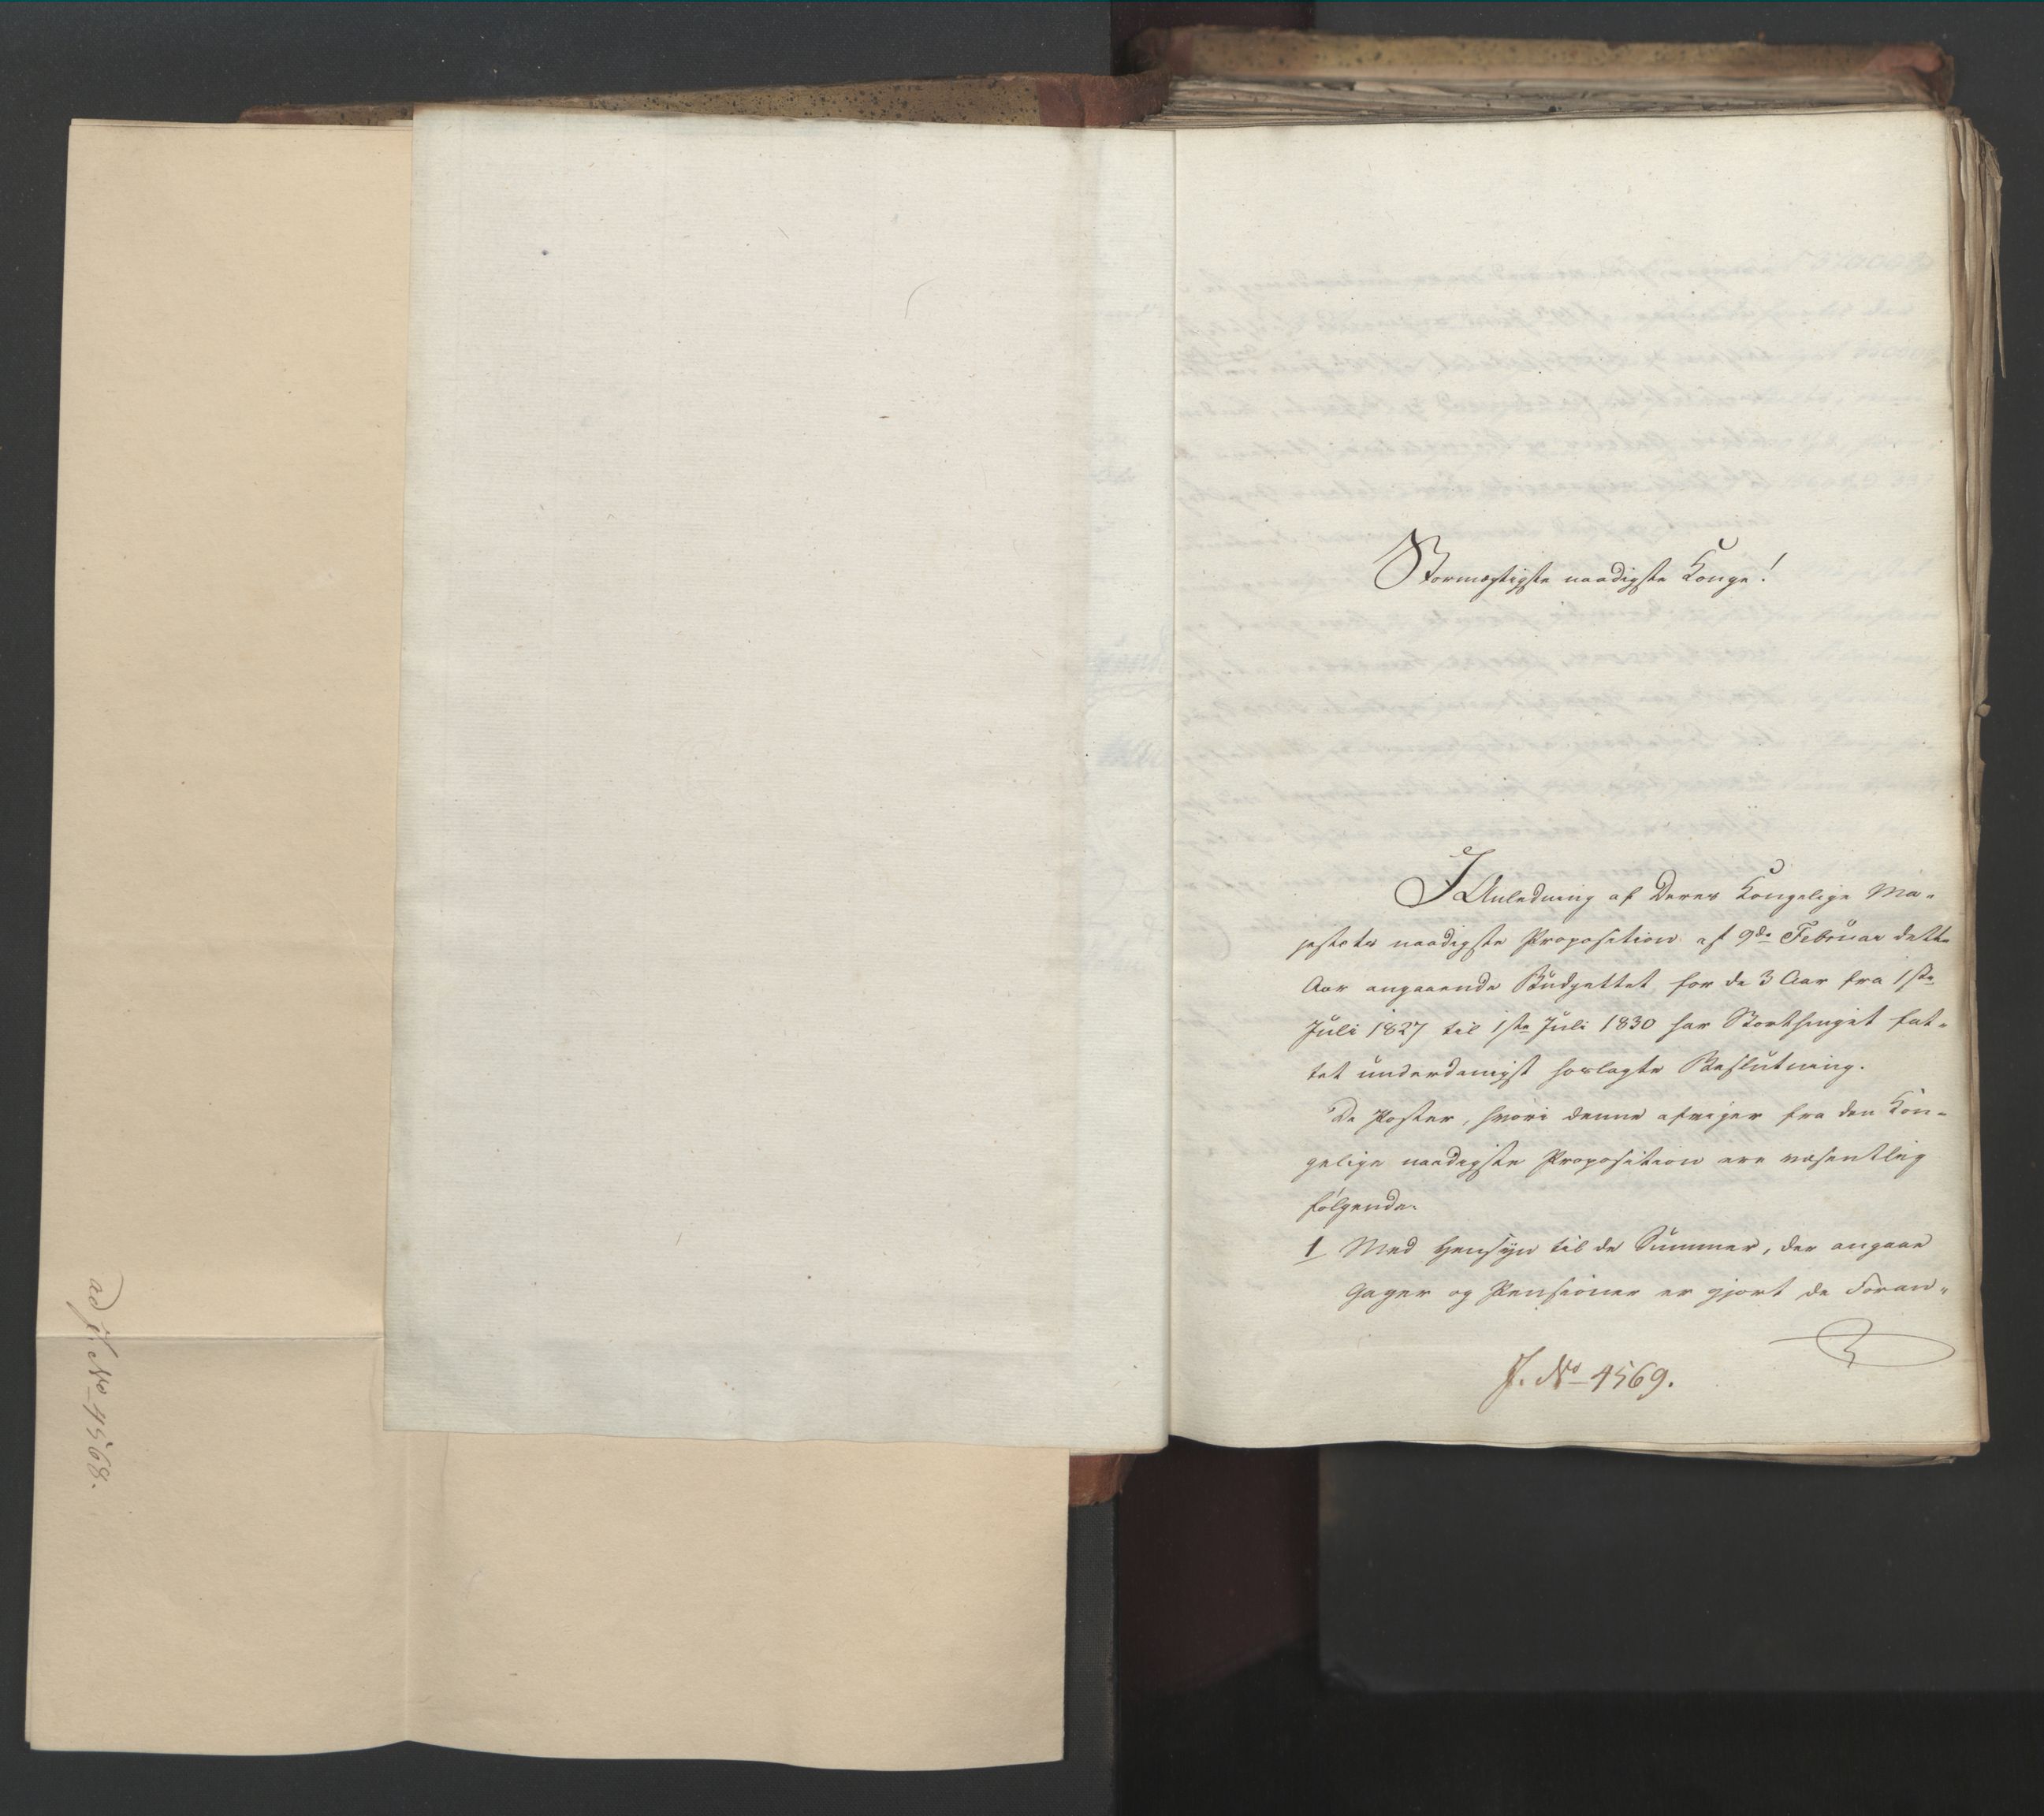 ad J. No 4568.
Stormægtigste naadigste Konge!
I Anledning af Deres Kongelige Ma-
jestets naadigste Proposition af 9de Februar dette
Aar angaaende Budgettet for de 3 Aar fra 1ste
Juli 1827 til 1ste Juli 1830 har Storthinget fat-
tet underdanigst hoslagte Beslutning.
De Poster, hvori denne afviger fra den Kon-
gelige naadigste Proposition ere væsentlig
følgende.
1 Med Hensyn til de Summer, der angaae
Gager og Pensioner er gjort de Foran-
J. No 4569.